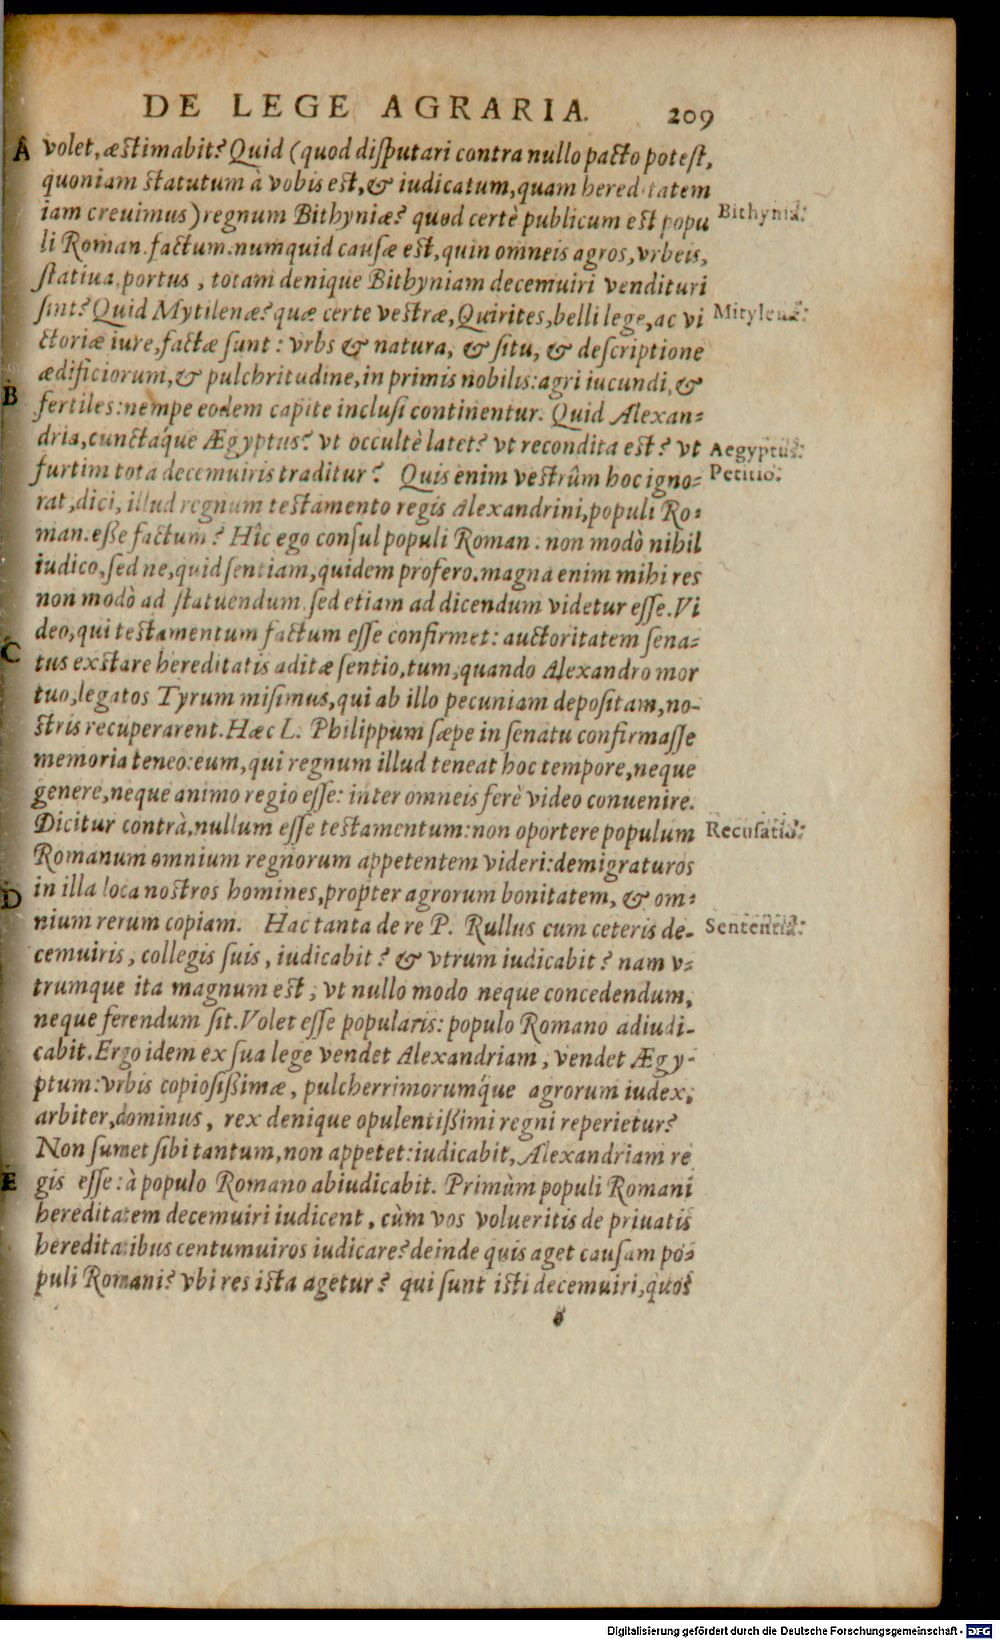 DE LEGE AGRARIA. 209
A volet, æstimabit? Quid (quod disputari contra nullo pacto potest,
quoniam statutum à vobis est, & iudicatum, quam hereditatem
iam creuimus) regnum Bithyniæ? quod certè publicum est popu Bithynia:
li Roman. factum. numquid causæ est, quin omneis agros, vrbeis,
statiua, portus, totam denique Bithyniam decemuiri vendituri
sint? Quid Mytilenæ? quæ certe vestræ, Quirites, belli lege, ac vi Mitylenæ:
ctoriæ iure, factæ sunt: vrbs & natura, & situ, & descriptione
ædificiorum, & pulchritudine, in primis nobilis: agri iucundi, &
B fertiles: nempe eodem capite inclusi continentur. Quid Alexan-
dria, cunctáque Ægyptus? vt occultè latet? vt recondita est? vt Aegyptus:
furtim tota decemuiris traditur? Quis enim vestrûm hoc igno- Petitio:
rat, dici, illud regnum testamento regis Alexandrini, populi Ro-
man. esse factum? Hîc ego consul populi Roman. non modò nihil
iudico, sed ne, quid sentiam, quidem profero. magna enim mihi res
non modò ad statuendum, sed etiam ad dicendum videtur esse. Vi
deo, qui testamentum factum esse confirmet: auctoritatem sena-
C tus exstare hereditatis aditæ sentio, tum, quando Alexandro mor
tuo, legatos Tyrum misimus, qui ab illo pecuniam depositam, no-
stris recuperarent. Hæc L. Philippum sæpe in senatu confirmasse
memoria teneo: eum, qui regnum illud teneat hoc tempore, neque
genere, neque animo regio esse: inter omneis ferè video conuenire.
Dicitur contrà, nullum esse testamentum: non oportere populum Recusatio:
Romanum omnium regnorum appetentem videri: demigraturos
D in illa loca nostros homines, propter agrorum bonitatem, & om-
nium rerum copiam. Hac tanta de re P. Rullus cum ceteris de- Sententia:
cemuiris, collegis suis, iudicabit? & vtrum iudicabit? nam v-
trumque ita magnum est, vt nullo modo neque concedendum,
neque ferendum sit. Volet esse popularis: populo Romano adiudi-
cabit. Ergo idem ex sua lege vendet Alexandriam, vendet Ægy-
ptum: vrbis copiosissimæ, pulcherrimorumq́ue agrorum iudex,
arbiter, dominus, rex denique opulentissimi regni reperietur?
Non sumet sibi tantum, non appetet: iudicabit, Alexandriam re
E gis esse: à populo Romano abiudicabit. Primùm populi Romani
hereditatem decemuiri iudicent, cùm vos volueritis de priuatis
hereditatibus centumuiros iudicare? deinde quis aget causam po-
puli Romani? vbi res ista agetur? qui sunt isti decemuiri, quos
Digitalisierung gefördert durch die Deutsche Forschungsgemeinschaft - DFG